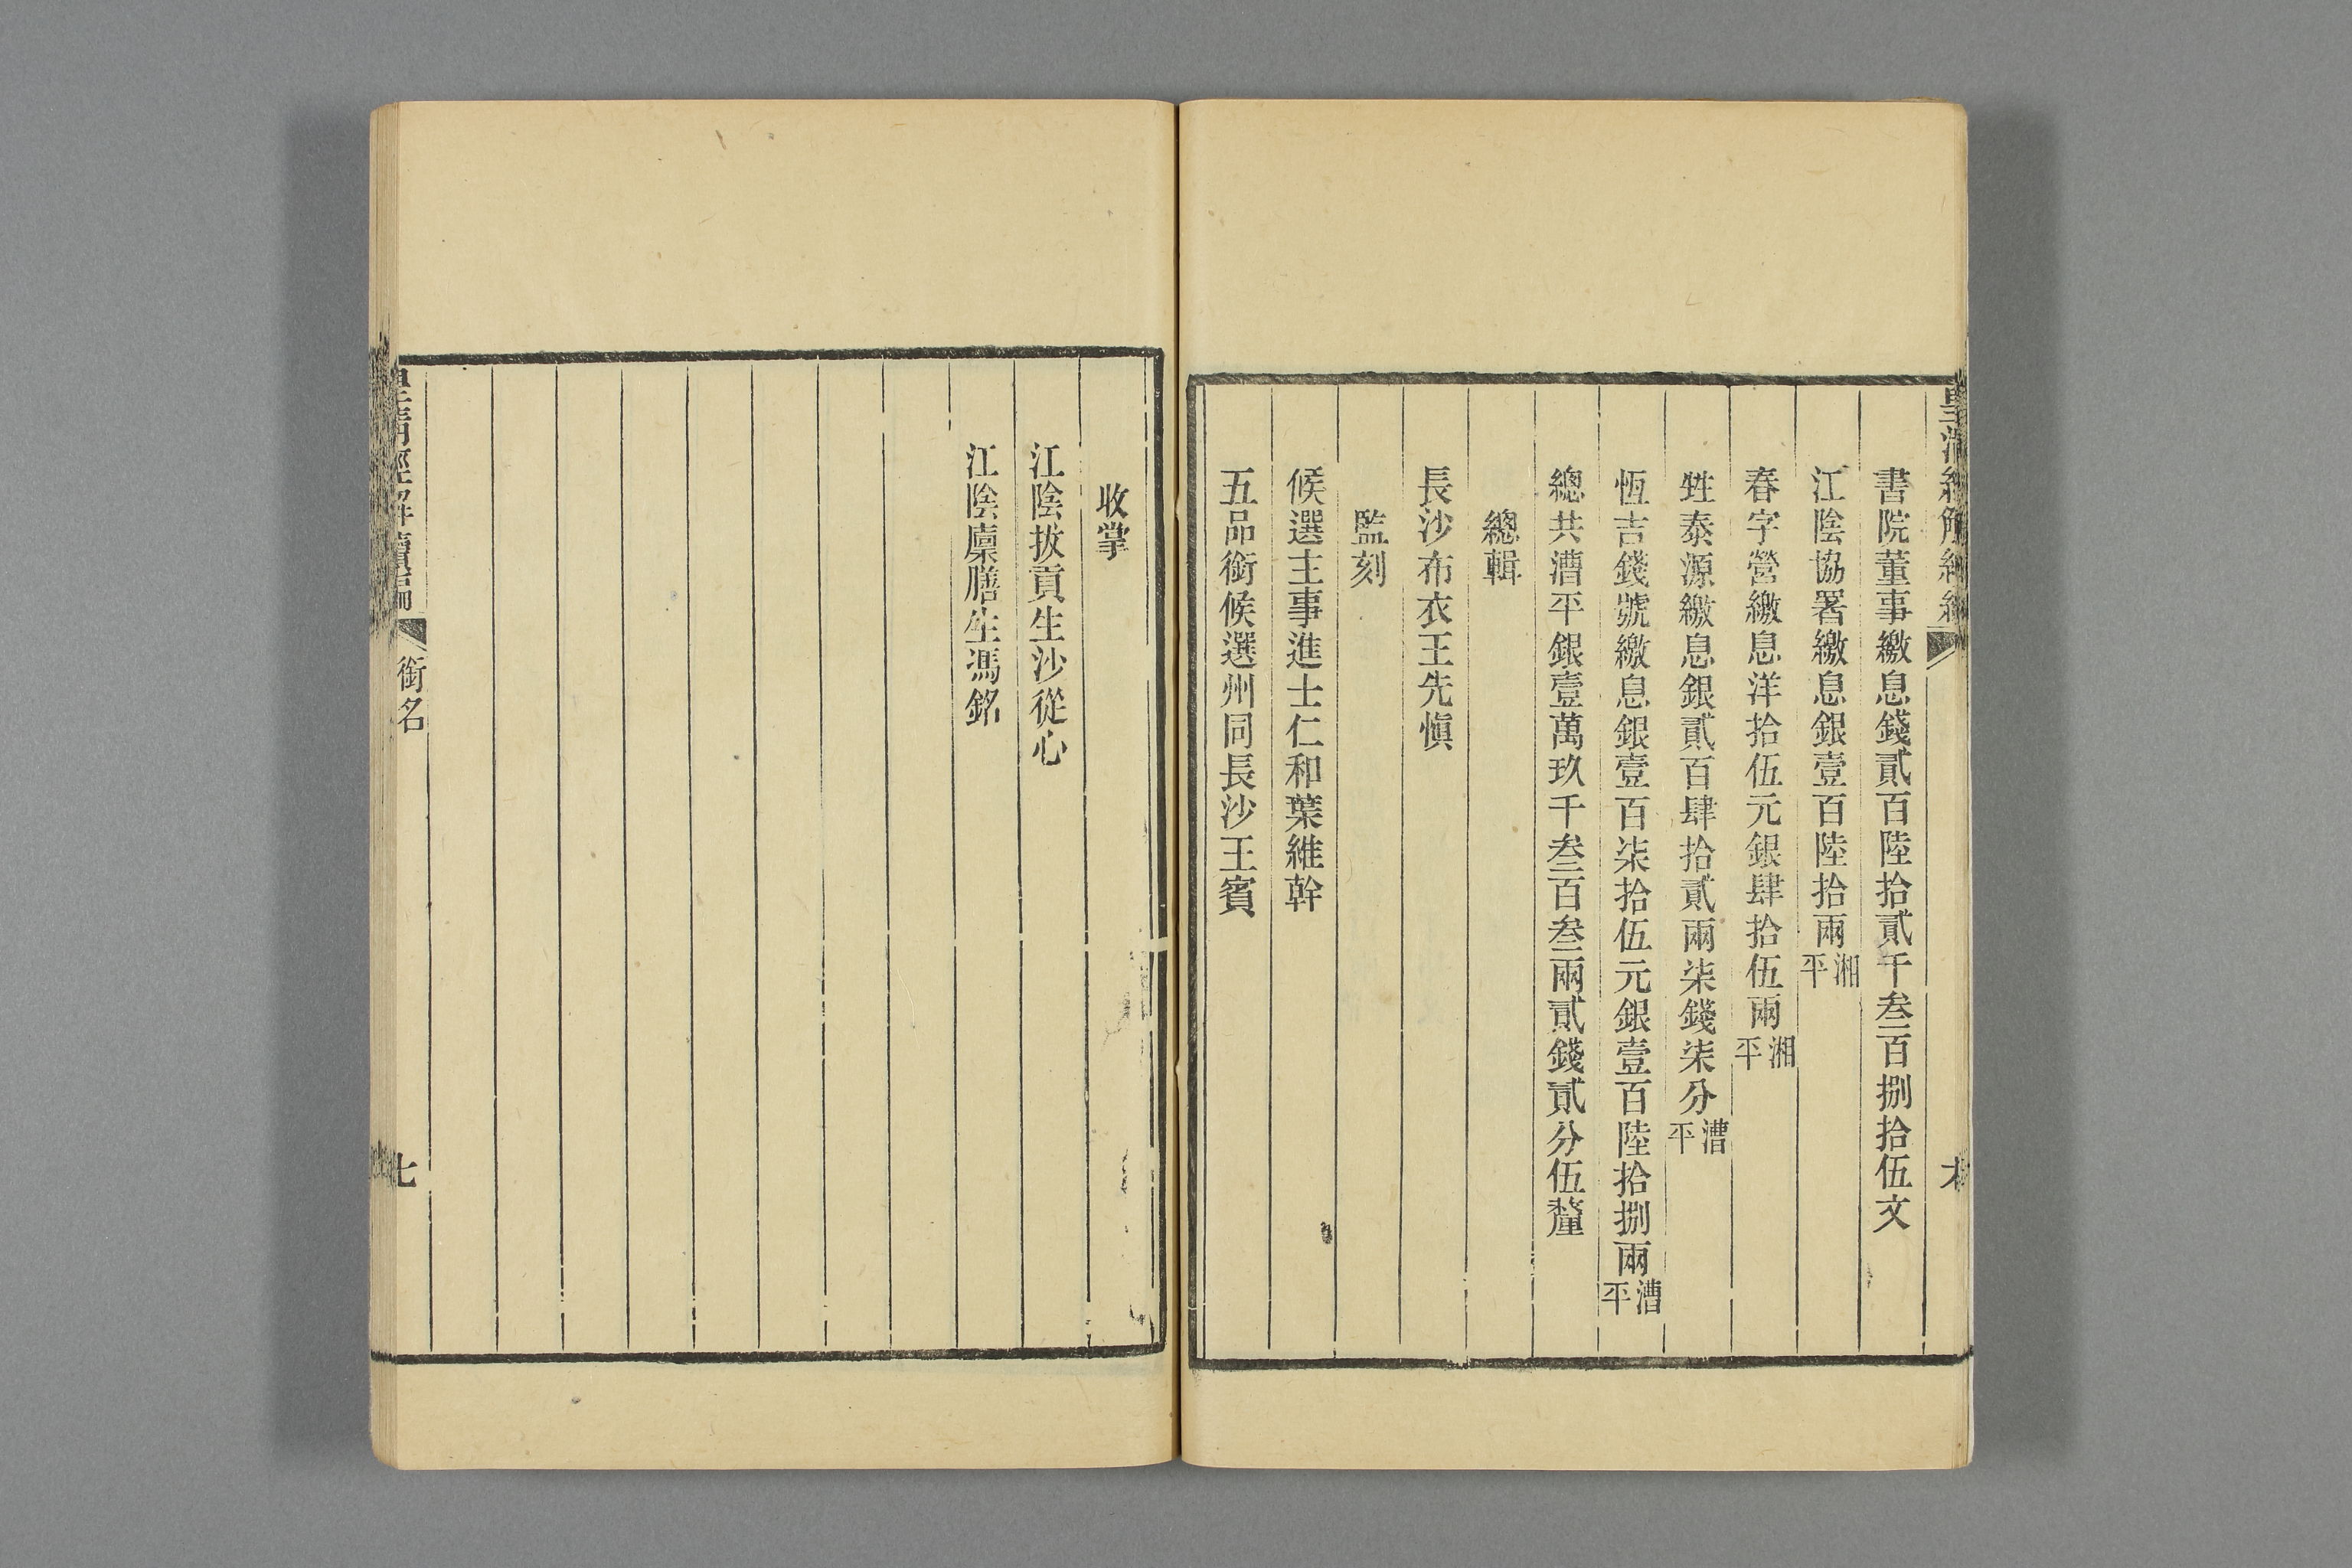 皇清經解續編
六
書院董事繳息錢貳百陸拾貳千叁百捌拾伍文
江陰協署繳息銀壹百陸拾兩湘平
春字營繳息洋拾伍元銀肆拾伍兩湘平
甡泰源繳息銀貳百肆拾貳兩柒錢柒分漕平
恆吉錢號繳息銀壹百柒拾伍元銀壹百陸拾捌兩漕平
總共漕平銀壹萬玖千叁百叁兩貳錢貳分伍釐
總輯
長沙布衣王先愼
監刻
候選主事進士仁和葉維幹
五品銜候選州同長沙王賓
收掌
江陰拔貢生沙從心
江陰廩膳生馮銘
皇清經解續編
銜名
七